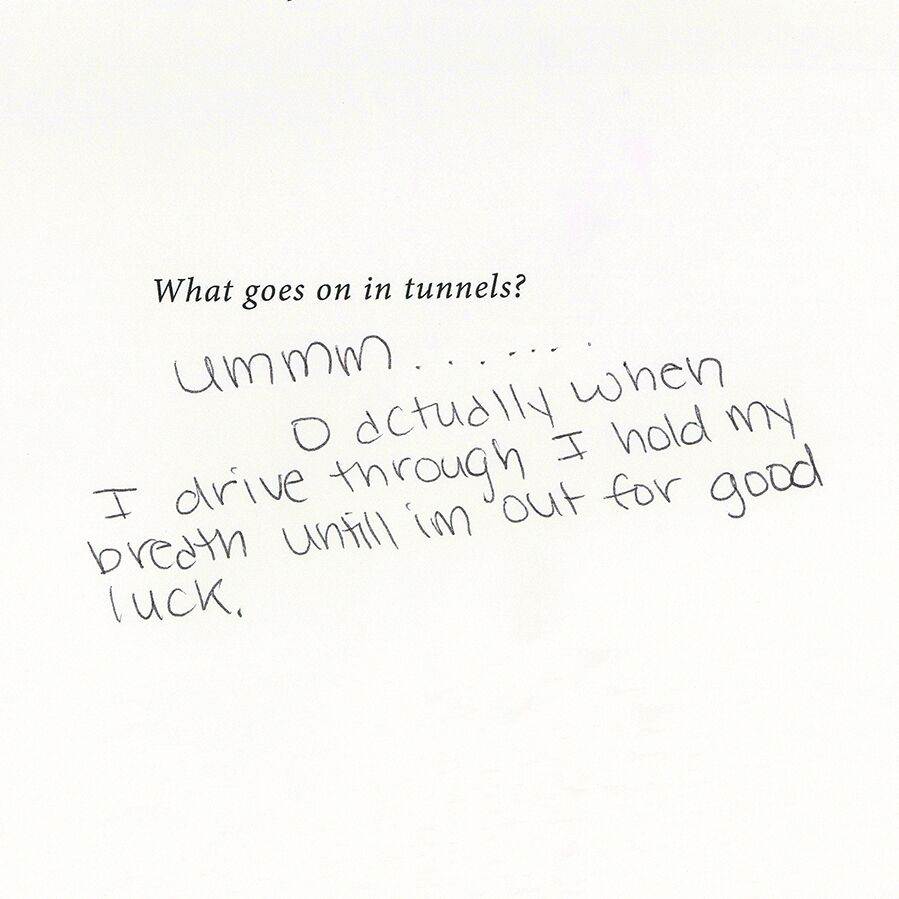 What goes on in tunnels?
ummm........
O actually when
I drive through I hold my
breath untill im out for good
luck.